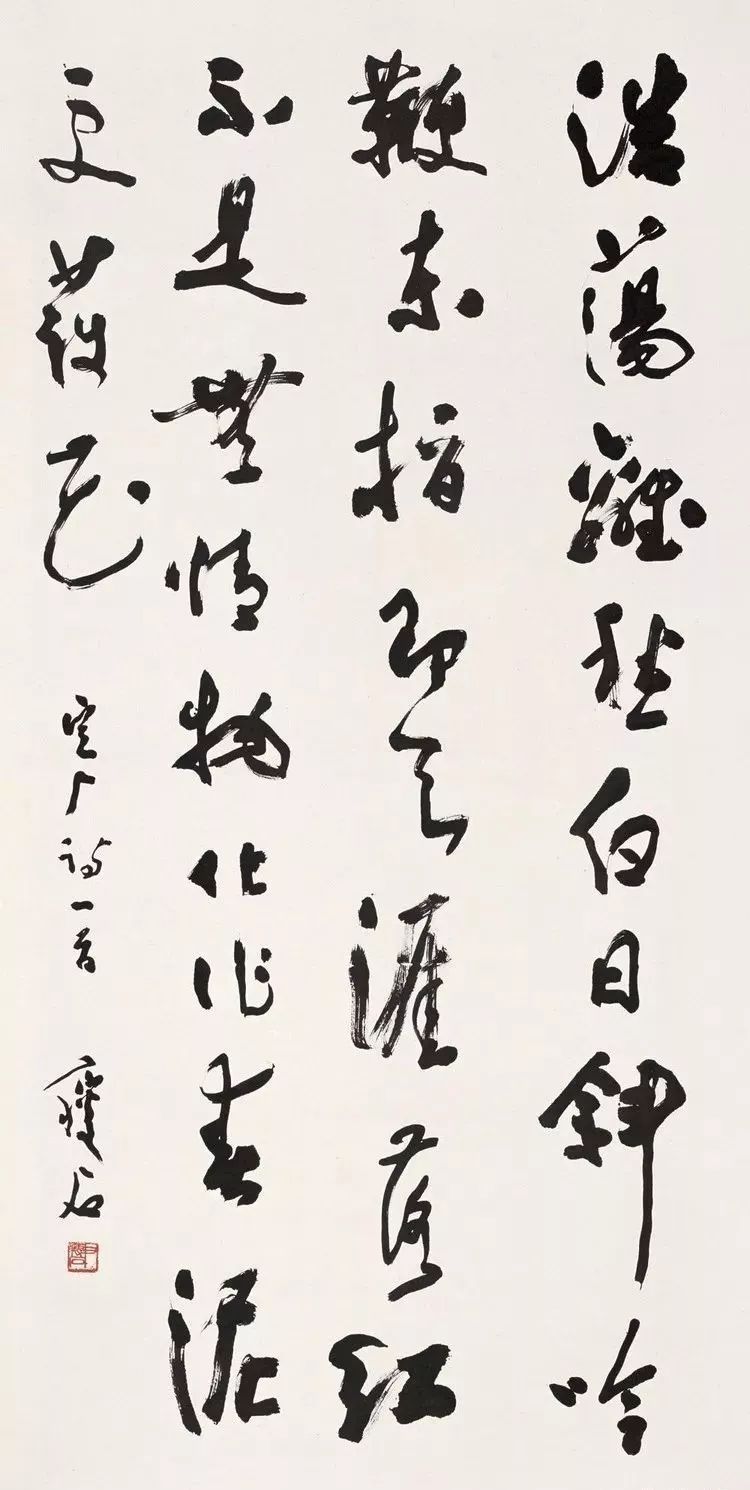 浩蕩離愁白日斜吟
鞭東指即天涯落紅
不是無情物化作春泥
更護花 定厂詩一首 瘦石